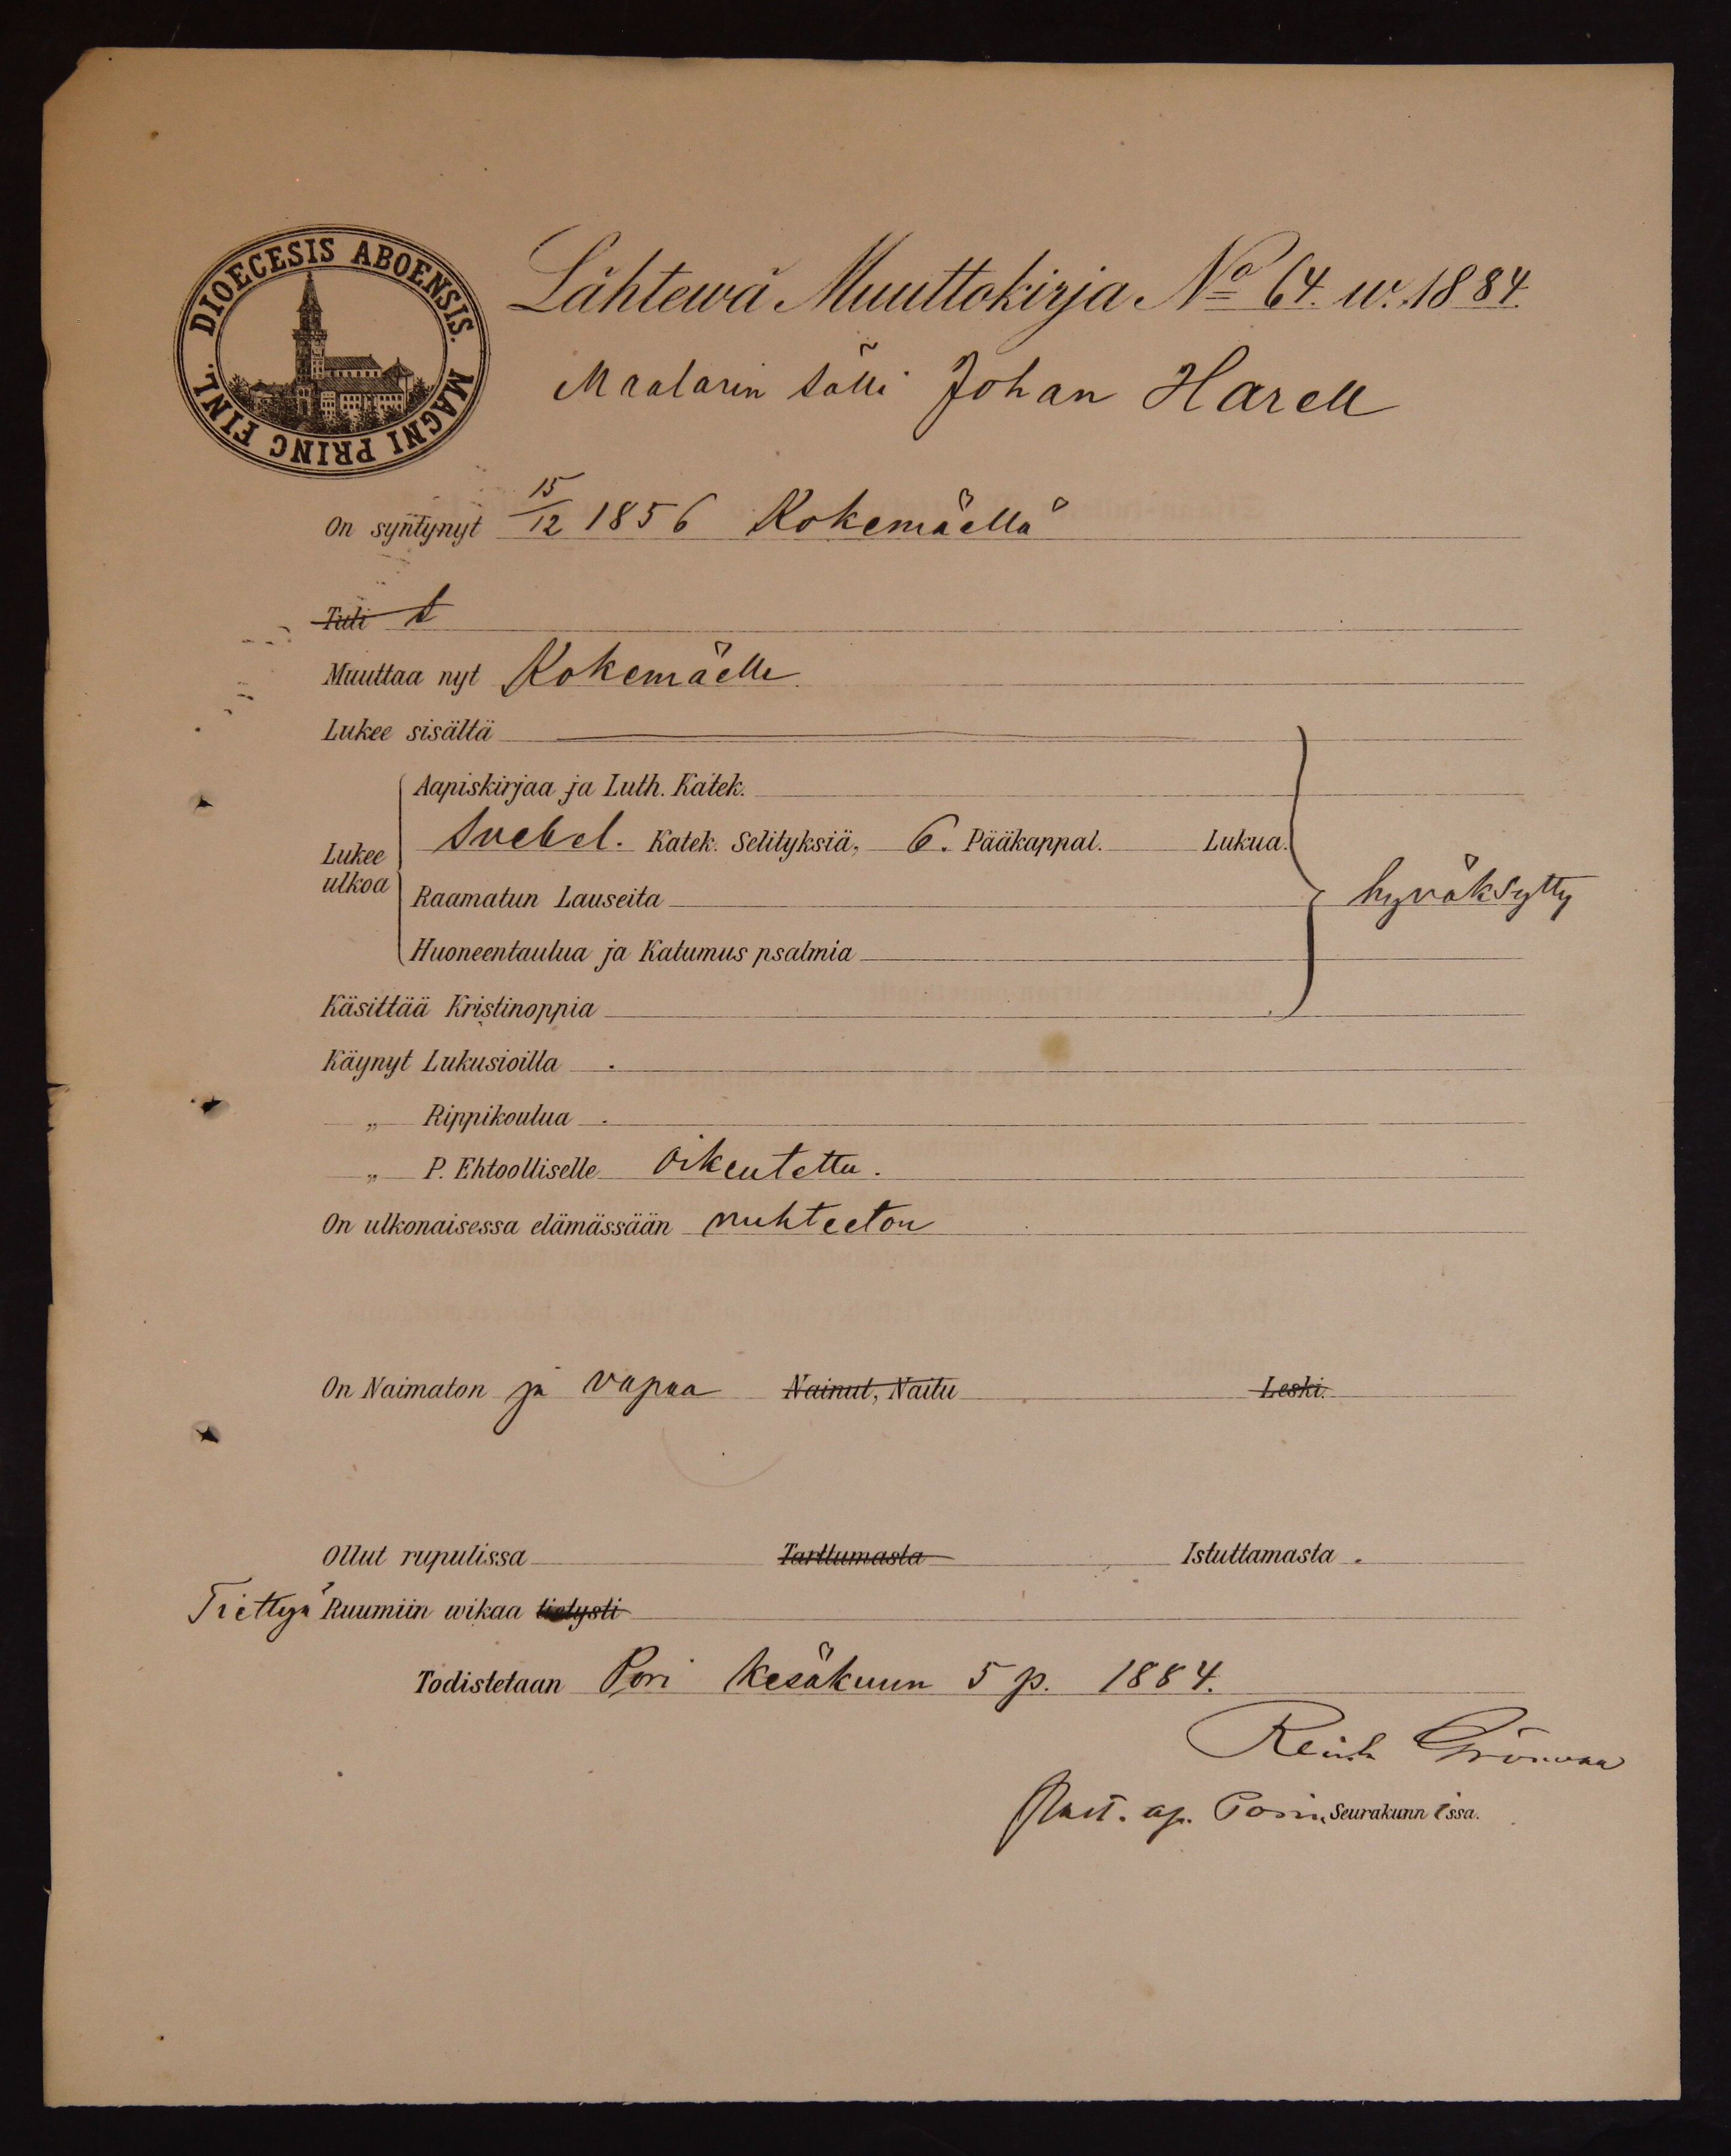 DIOECESIS ABOENSIS. MAGNI PRINC FINL.
Lähtewä Muuttokirja No 64. w. 1884.
Maalarin sälli Johan Harell
On syntynyt 15/12 1856 Kokemäellä
Tuli
Muuttaa nyt Kokemäelle
Lukee sisältä
Aapiskirjaa ja Luth. Katek.
Svebel. Katek. Selityksiä, 6. Pääkappal. Lukua.
Lukee ulkoa
Raamatun Lauseita
hyväksytty
Huoneentaulua ja Katumus psalmia
Käsittää Kristinoppia
Käynyt Lukusioilla
„ Rippikoulua
„ P. Ehtoolliselle oikeutettu.
On ulkonaisessa elämässään nuhteeton
On Naimaton ja vapaa Nainut, Naitu Leski.
Ollut rupulissa Tarttumasta Istuttamasta.
Tiettyä Ruumiin wikaa tietysti
Todistetaan Pori kesäkuun 5 p. 1884.
Grönvall
Past. ap. Porin Seurakunnissa.